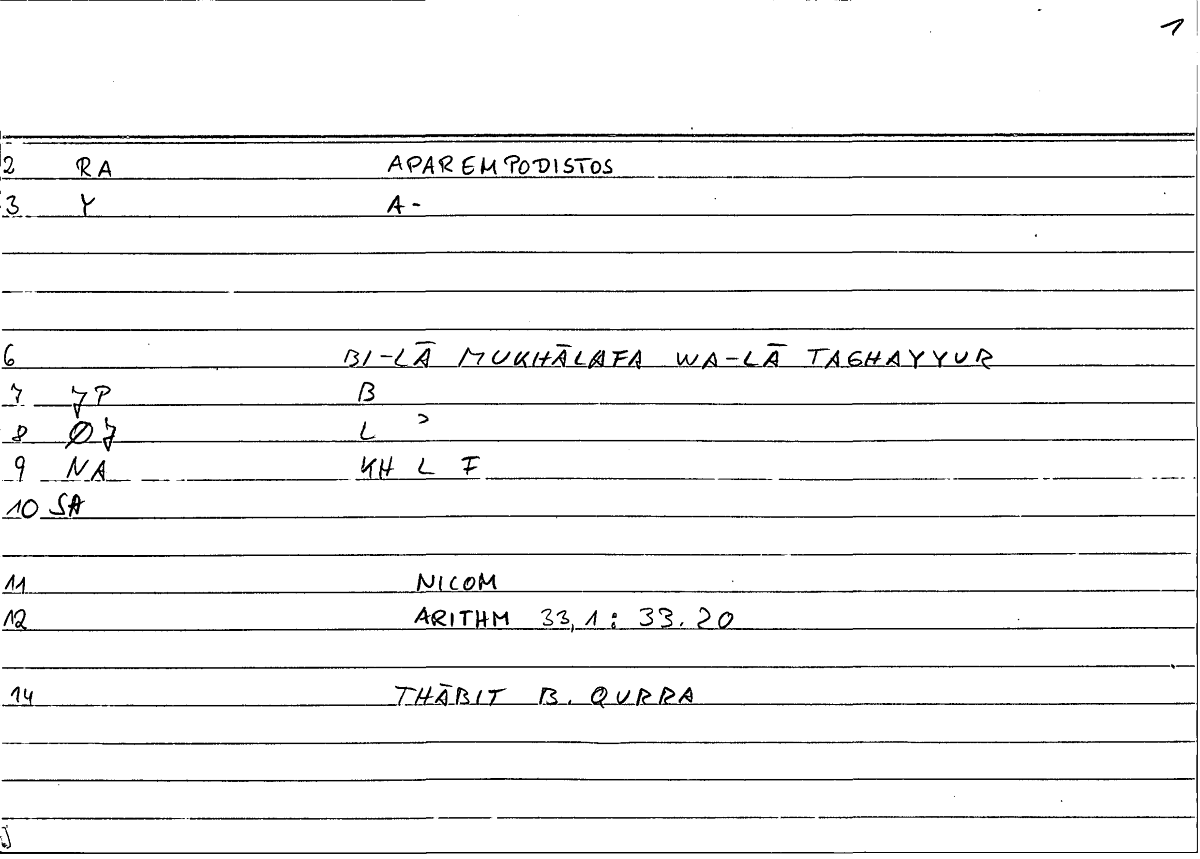 1
2 RA APAREMPODISTOS
3 Y A-
6 BI-LĀ MUKHĀLAFA WA-LĀ TAGHAYYUR
7 JP B
8 ØJ L ʾ
9 NA KH L F
10 SA
11 NICOM
12 ARITHM 33,1 : 33.20
14 THĀBIT B. QURRA